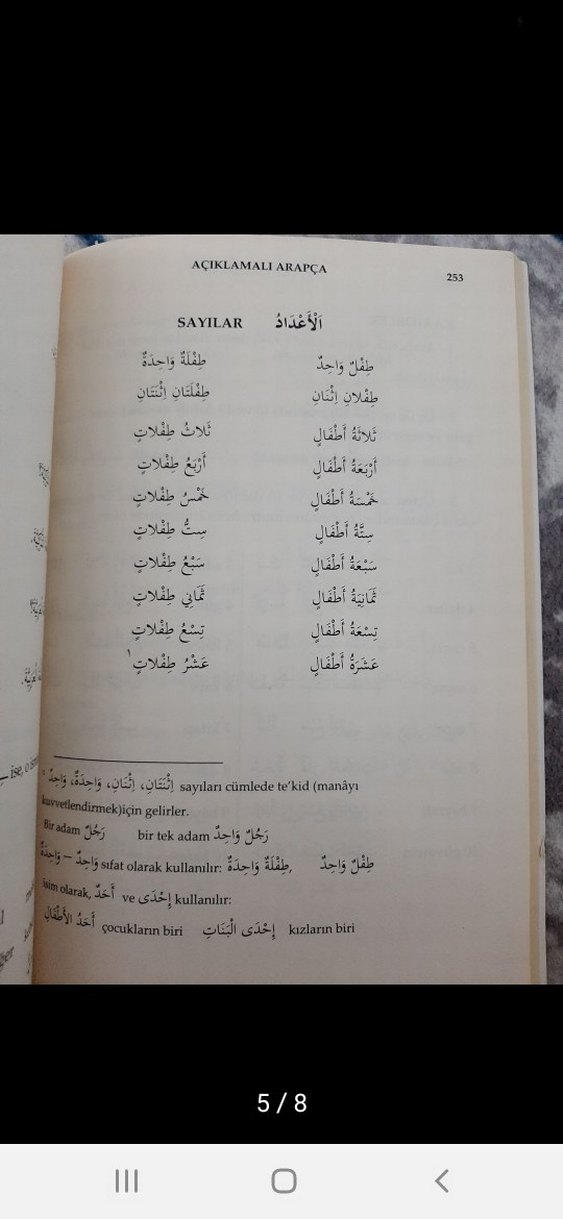 AÇIKLAMALI ARAPÇA
253
SAYILAR اَلْأَعْدَادُ
طِفْلٌ وَاحِدٌ طِفْلَةٌ وَاحِدَةٌ
طِفْلانِ اِثْنَانِ طِفْلَتَانِ اِثْنَتَانِ
ثَلاثَةُ أَطْفَالٍ ثَلاثُ طِفْلاتٍ
أَرْبَعَةُ أَطْفَالٍ أَرْبَعُ طِفْلاتٍ
خَمْسَةُ أَطْفَالٍ خَمْسُ طِفْلاتٍ
سِتَّةُ أَطْفَالٍ سِتُّ طِفْلاتٍ
سَبْعَةُ أَطْفَالٍ سَبْعُ طِفْلاتٍ
ثَمَانِيَةُ أَطْفَالٍ ثَمَانِي طِفْلاتٍ
تِسْعَةُ أَطْفَالٍ تِسْعُ طِفْلاتٍ
عَشَرَةُ أَطْفَالٍ عَشْرُ طِفْلاتٍ ١
اِثْنَتَانِ، اِثْنَانِ، وَاحِدَةٌ، وَاحِدٌ sayıları cümlede te'kid (manâyı
kuvvetlendirmek)için gelirler.
Bir adam رَجُلٌ bir tek adam رَجُلٌ وَاحِدٌ
وَاحِدٌ – وَاحِدَةٌ sıfat olarak kullanılır: طِفْلَةٌ وَاحِدَةٌ, طِفْلٌ وَاحِدٌ
isim olarak, أَحَدٌ ve إِحْدَى kullanılır:
أَحَدُ الأَطْفَالِ çocukların biri إِحْدَى الْبَنَاتِ kızların biri
5 / 8